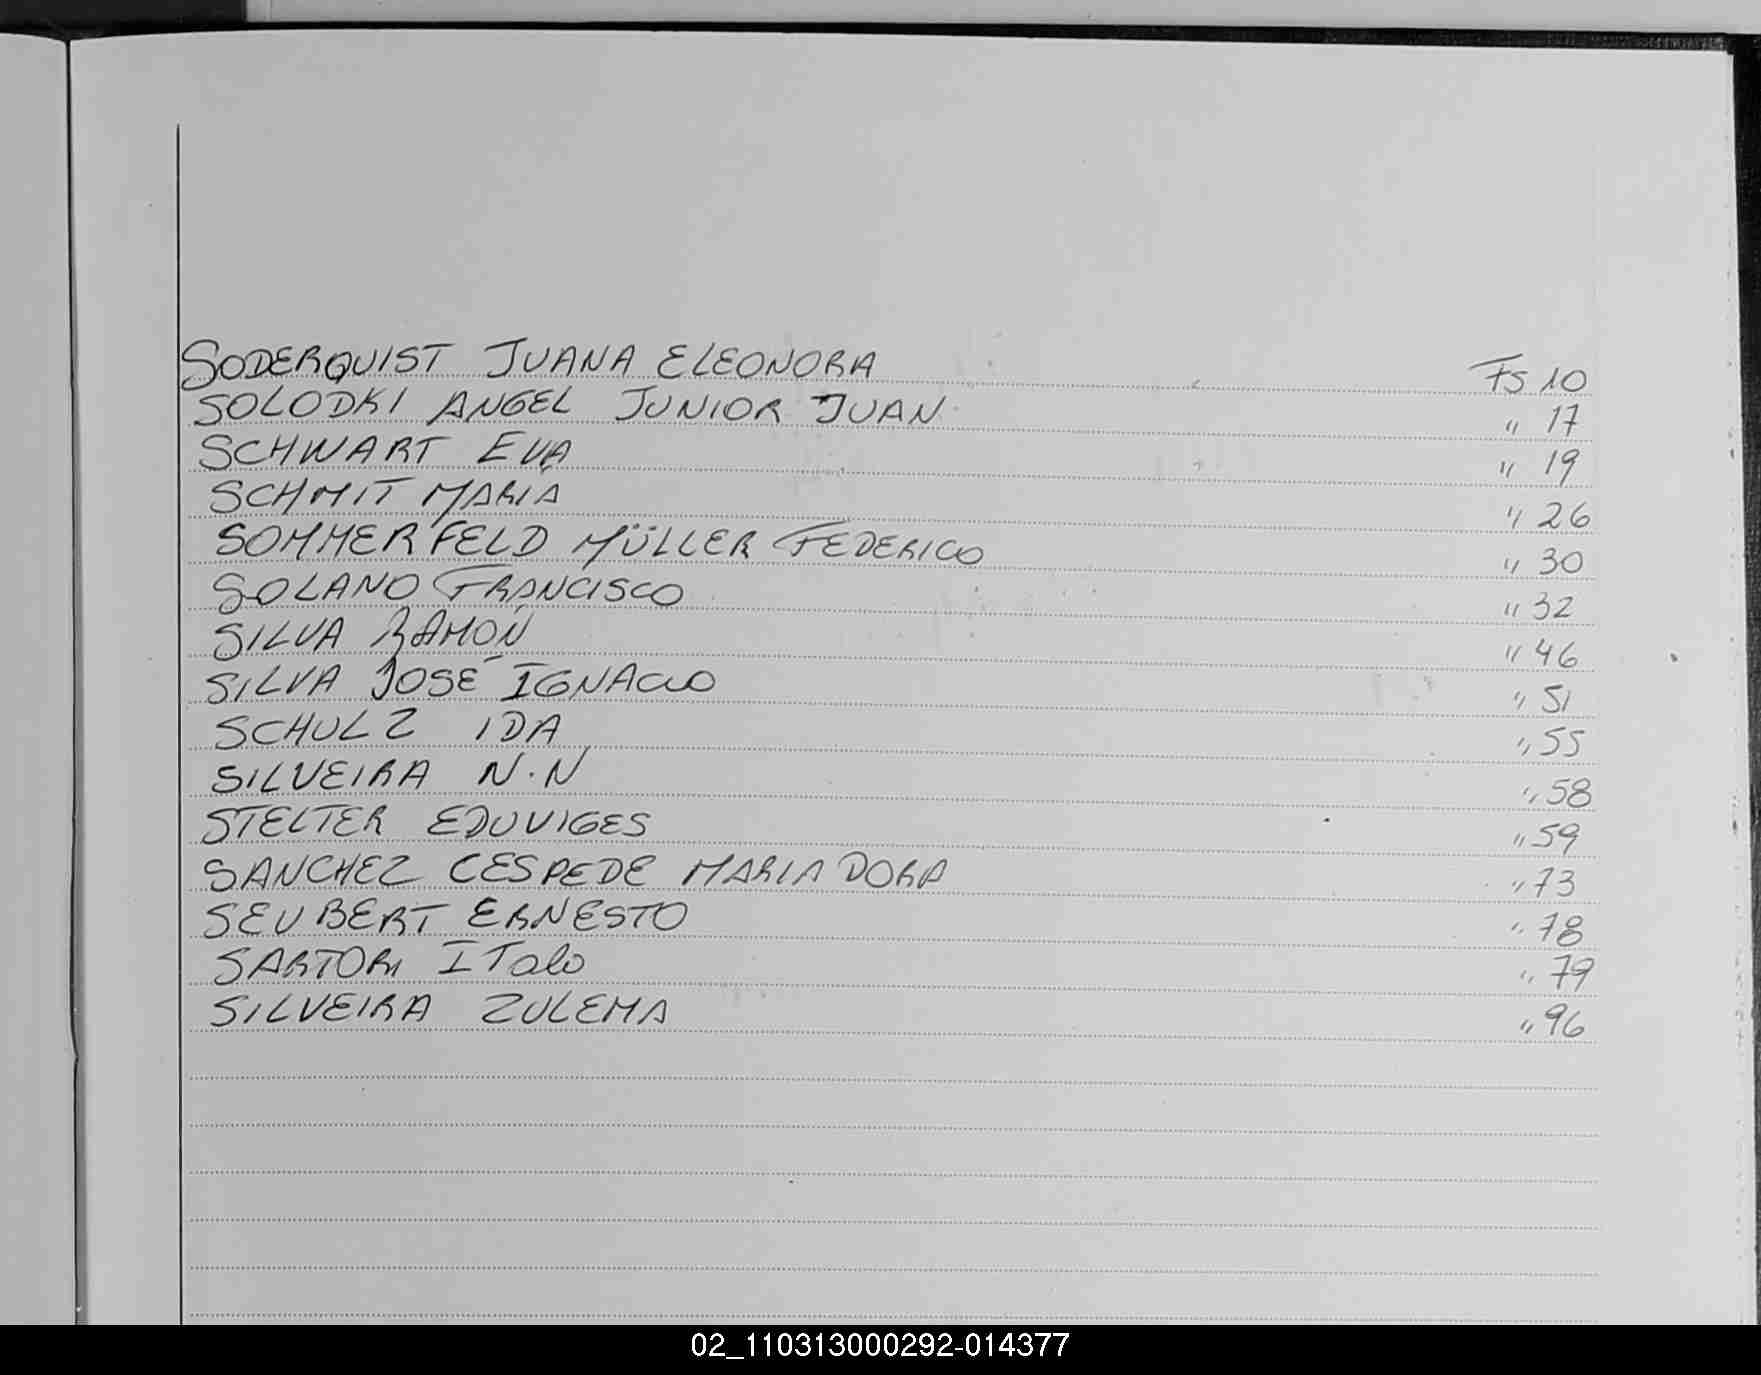 SODERQUIST JUANA ELEONORA Fs 10
SOLODKI ANGEL JUNIOR JUAN " 17
SCHWART EVA " 19
SCHMIT MARIA " 26
SOMMERFELD MÜLLER FEDERICO " 30
SOLANO FRANCISCO " 32
SILVA RAMÓN " 46
SILVA JOSÉ IGNACIO " 51
SCHULZ IDA " 55
SILVEIRA N.N " 58
STELTER EDUVIGES " 59
SANCHEZ CESPEDE MARIA DORA " 73
SEUBERT ERNESTO " 78
SARTORI ITalo " 79
SILVEIRA ZULEMA " 96
02_110313000292-014377